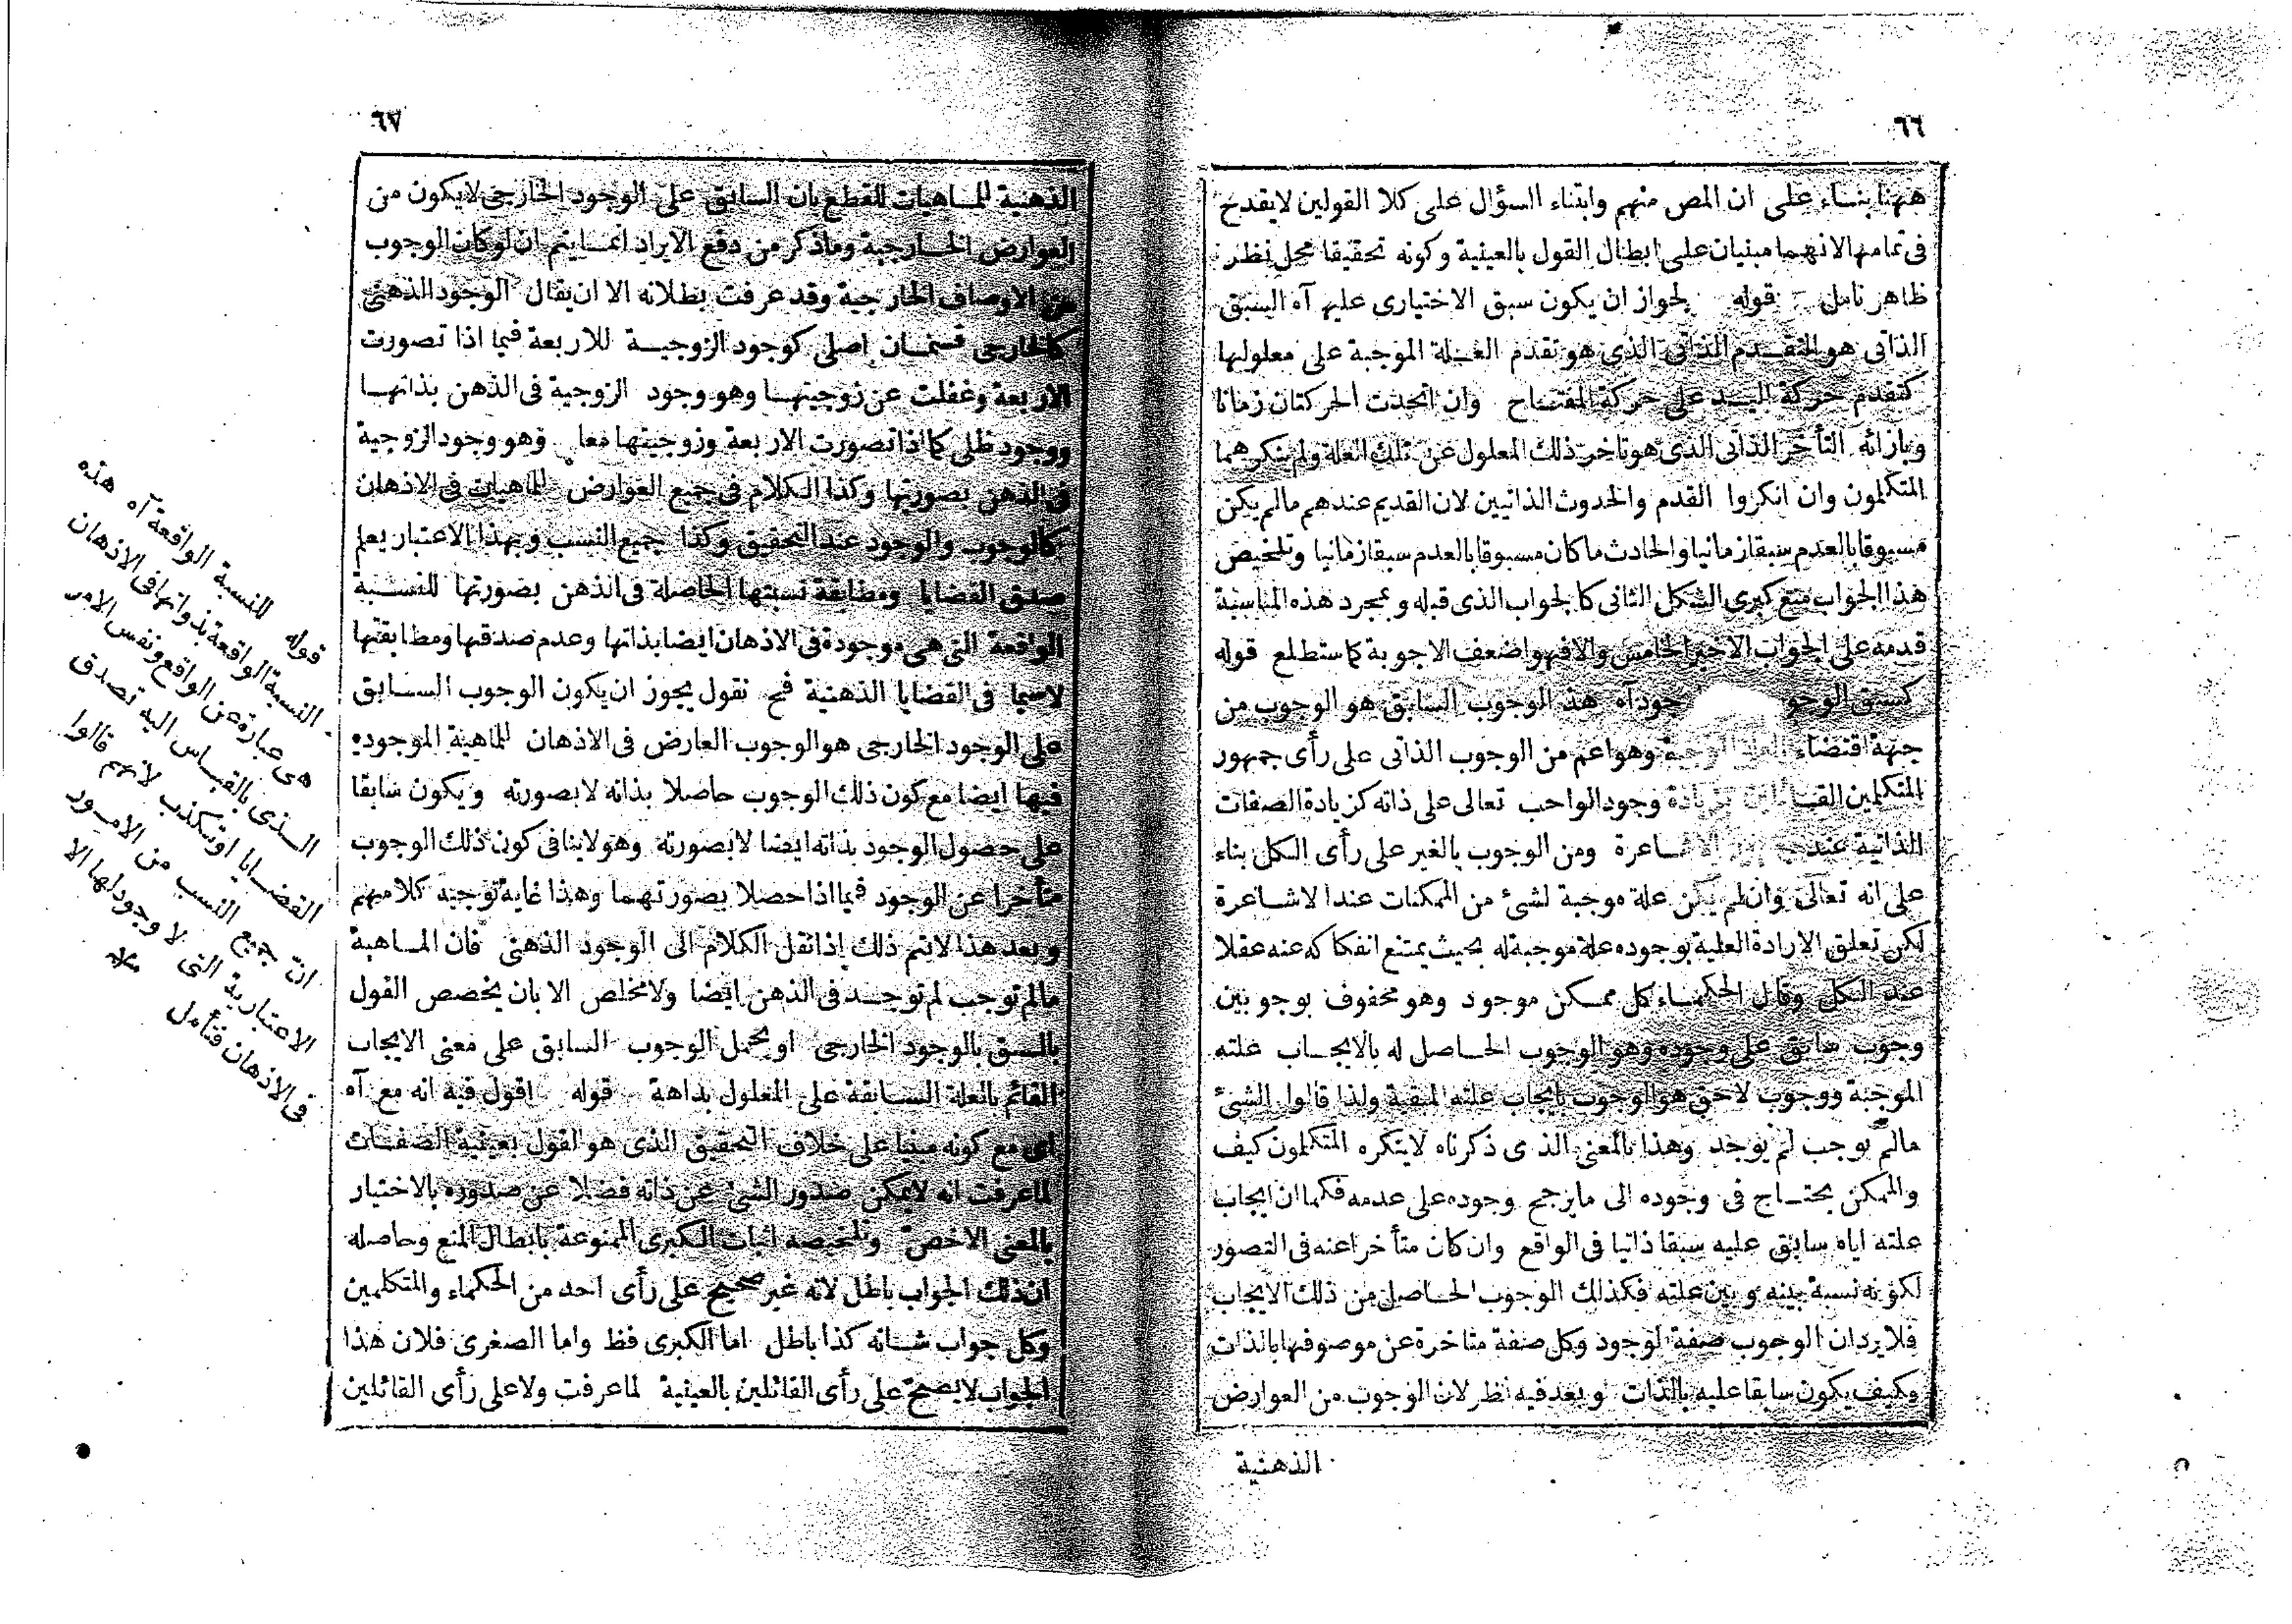 ٦٦
ههنا بناء على ان المص منهم وابتناء السؤال على كلا القولين لا يقدح
فى تمامها لانهما مبنيان على ابطال القول بالعينية وكونه تحقيقا محل نظر
ظاهر تأمل قوله لجواز ان يكون سبق الاختيارى عليها آه السبق
الذاتى هو التقدم الذاتى الذى هو تقدم العلة الموجبة على معلولها
كتقدم حركة اليد على حركة المفتاح وان اتحدت الحركتان زمانا
وبازائه التأخر الذاتى الذى هو تاخر ذلك المعلول عن تلك العلة ولم ينكرهما
المتكلمون وان انكروا القدم والحدوث الذاتيين لان القديم عندهم مالم يكن
مسبوقا بالعدم سبقا زمانيا والحادث ما كان مسبوقا بالعدم سبقا زمانيا وتلخيص
هذا الجواب منع كبرى الشكل الثانى كالجواب الذى قبله وبمجرد هذه المناسبة
قدمه على الجواب الاخير الخامس والا فهو اضعف الاجوبة كما ستطلع قوله
كسبق الوجو جود آه هذ الوجوب السابق هو الوجوب من
جهة اقتضاء وهو اعم من الوجوب الذاتى على رأى جمهور
المتكلمين بزيادة وجود الواجب تعالى على ذاته كزيادة الصفات
الذاتية عند الاشاعرة ومن الوجوب بالغير على رأى الكل بناء
على انه تعالى وان لم يكن علة موجبة لشئ من الممكنات عند الاشاعرة
لكن تعلق الارادة العلية بوجوده علة موجبة له بحيث يمتنع انفكاكه عنه عقلا
عند الكل وقال الحكماء كل ممكن موجود وهو محفوف بوجوبين
وجوب سابق على وجوده وهو الوجوب الحاصل له بالايجاب علته
الموجبة ووجوب لاحق هو الوجوب بايجاب علته المبقية ولذا قالوا الشئ
مالم يوجب لم يوجد وهذا بالمعنى الذى ذكرناه لاينكره المتكلمون كيف
والممكن يحتاج فى وجوده الى مايرجح وجوده على عدمه فكما ان ايجاب
علته اياه سابق عليه سبقا ذاتيا فى الواقع وان كان متأخرا عنه فى التصور
لكونه نسبة بينه وبين علته فكذلك الوجوب الحاصل من ذلك الايجاب
فلا يرد ان الوجوب صفة لوجود وكل صفة متاخرة عن موصوفها بالذات
وكيف يكون سابقا عليه بالذات وبعد فيه نظر لان الوجوب من العوارض
الذهنية
٦٧
الذهنية للماهيات للقطع بان السابق على الوجود الخارجى لايكون من
العوارض الخارجية وماذكر من دفع الايراد انما يتم ان لو كان الوجوب
من الاوصاف الخارجية وقد عرفت بطلانه الا ان يقال الوجود الذهنى
كالخارجى قسمان اصلى كوجود الزوجية للاربعة فيما اذا تصورت
الاربعة وغفلت عن زوجيتها وهو وجود الزوجية فى الذهن بذاتها
ووجود ظلى كما اذا تصورت الاربعة وزوجيتها معا وهو وجود الزوجية
فى الذهن بصورتها وكذا الكلام فى جميع العوارض للماهيات فى الاذهان
كالوجوب والوجود عند التحقيق وكذا جميع النسب وبهذا الاعتبار يعلم
صدق القضايا ومطابقة نسبتها الحاصلة فى الذهن بصورتها للنسبة
الواقعة التى هى موجودة فى الاذهان ايضا بذاتها وعدم صدقها ومطابقتها
لاسيما فى القضايا الذهنية فح نقول يجوز ان يكون الوجوب السابق
على الوجود الخارجى هو الوجوب العارض فى الاذهان للماهية الموجوده
فيها ايضا مع كون ذلك الوجوب حاصلا بذاته لابصورته ويكون سابقا
على حصول الوجود بذاته ايضا لابصورته وهو لاينافى كون ذلك الوجوب
متأخرا عن الوجود فيما اذا حصلا بصورتهما وهذا غاية توجيه كلامهم
وبعد هذا لايتم ذلك اذا نقل الكلام الى الوجود الذهنى فان الماهية
مالم توجب لم توجد فى الذهن ايضا ولامخلص الا بان يخصص القول
بالسبق بالوجود الخارجى او يحمل الوجوب السابق على معنى الايجاب
القائم بالعلة السابقة على المعلول بداهة قوله اقول فيه انه مع آه
اى مع كونه مبنيا على خلاف التحقيق الذى هو القول بعينية الصفات
لما عرفت انه لايمكن صدور الشئ عن ذاته فضلا عن صدوره بالاختيار
بالمعنى الاخص وتلخيصه اثبات الكبرى الممنوعة بابطال المنع وحاصله
ان ذلك الجواب باطل لانه غير صحيح على رأى احد من الحكماء والمتكلمين
وكل جواب شانه كذا باطل اما الكبرى فظ واما الصغرى فلان هذا
الجواب لايصح على رأى القائلين بالعينية لما عرفت ولا على رأى القائلين
قوله للنسبة الواقعة آه هذه
النسبة الواقعة بذواتها فى الاذهان
هى عبارة عن الواقع ونفس الامر
الذى بالقياس اليه تصدق
القضايا او تكذب لانهم قالوا
ان جميع النسب من الامور
الاعتبارية التى لا وجود لها الا
فى الاذهان فتأمل